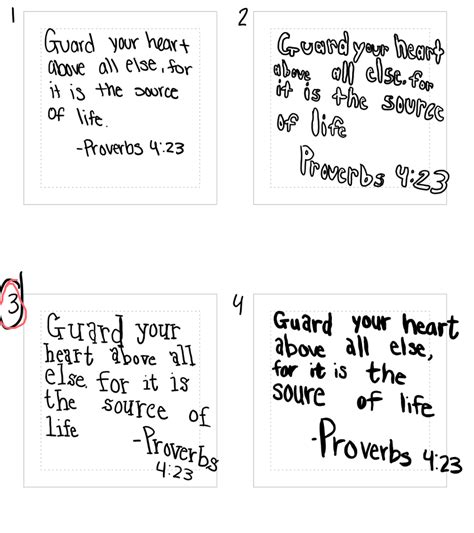 1
Guard your heart
above all else, for
it is the source
of life.
-Proverbs 4:23
2
Guard your heart
above all else. for
it is the source
of life
Proverbs 4:23
3
Guard your
heart above all
else. for it is
the source of
life
-Proverbs
4:23
4
Guard your heart
above all else,
for it is the
soure of life
-Proverbs 4:23